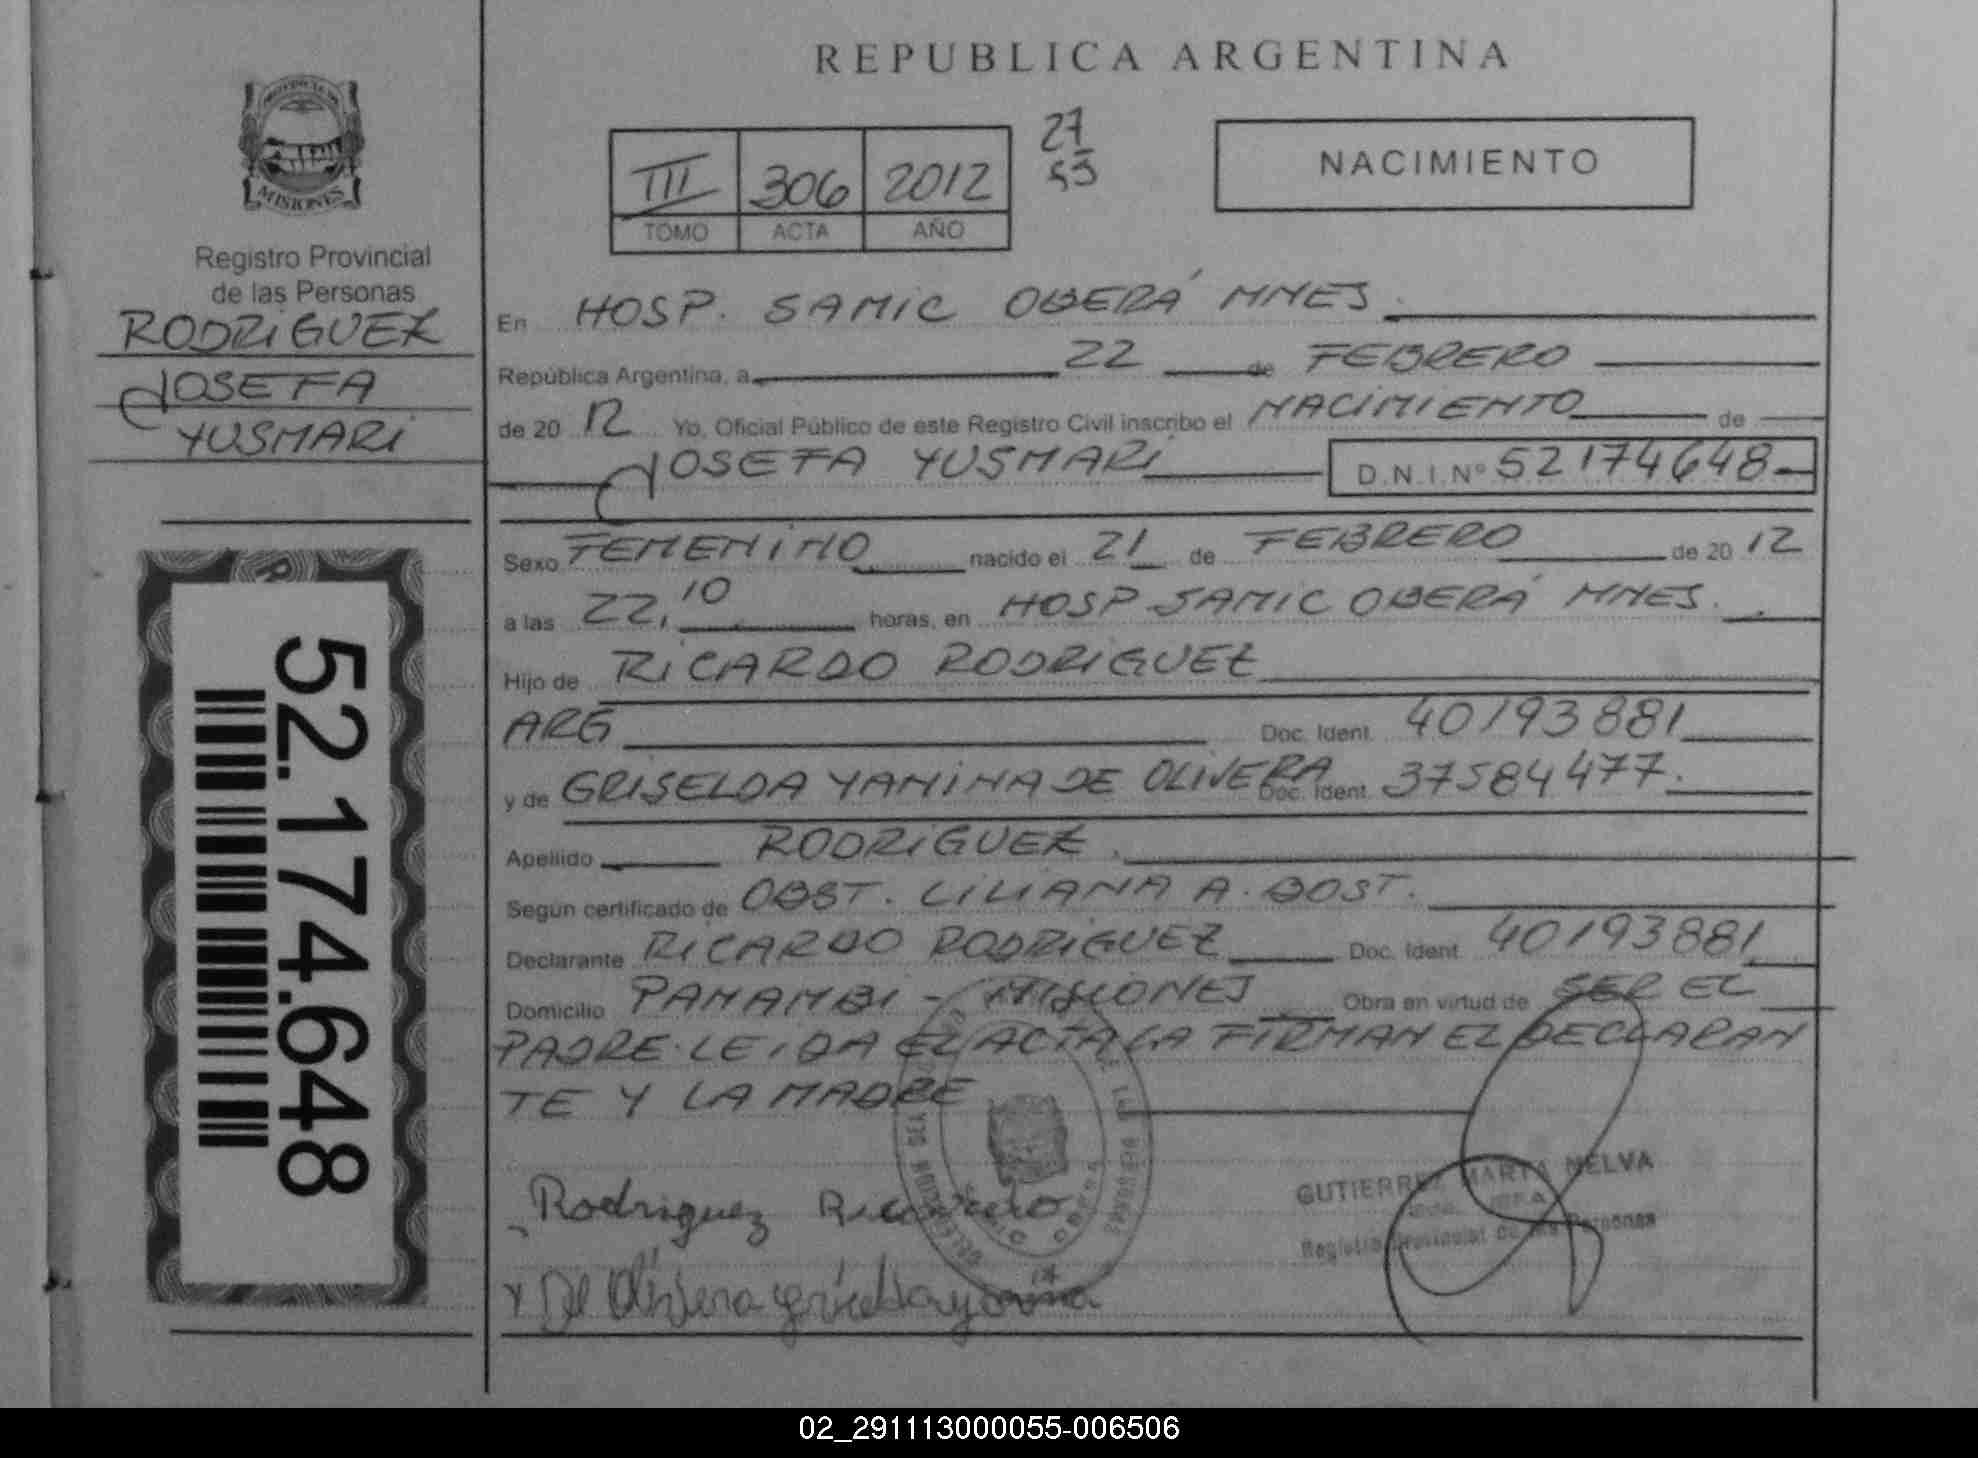 REPUBLICA ARGENTINA
PROVINCIA DE
MISIONES
Registro Provincial
de las Personas
RODRIGUEZ
JOSEFA
YUSMARI
52.174.648
III 306 2012
TOMO ACTA AÑO
27
53
NACIMIENTO
En HOSP. SAMIC OBERÁ MNES.
República Argentina, a 22 de FEBRERO
de 20 12 Yo, Oficial Público de este Registro Civil inscribo el NACIMIENTO de
JOSEFA YUSMARI D.N.I.Nº 52174648
Sexo FEMENINO nacido el 21 de FEBRERO de 20 12
a las 22,10 horas, en HOSP SAMIC OBERÁ MNES.
Hijo de RICARDO RODRIGUEZ
ARG Doc. Ident. 40193881
y de GRISELDA YANINA DE OLIVERA Doc. Ident. 37584477.
Apellido RODRIGUEZ.
Según certificado de OBST. LILIANA A. BOST.
Declarante RICARDO RODRIGUEZ Doc. Ident. 40193881
Domicilio PANAMBI - MISIONES Obra en virtud de SER EL
PADRE. LEIDA EL ACTA LA FIRMAN EL DECLARAN
TE Y LA MADRE
Rodriguez Ricardo
x De Olivera
GUTIERREZ MARTA NELVA
Registro Provincial de las Personas
02_291113000055-006506